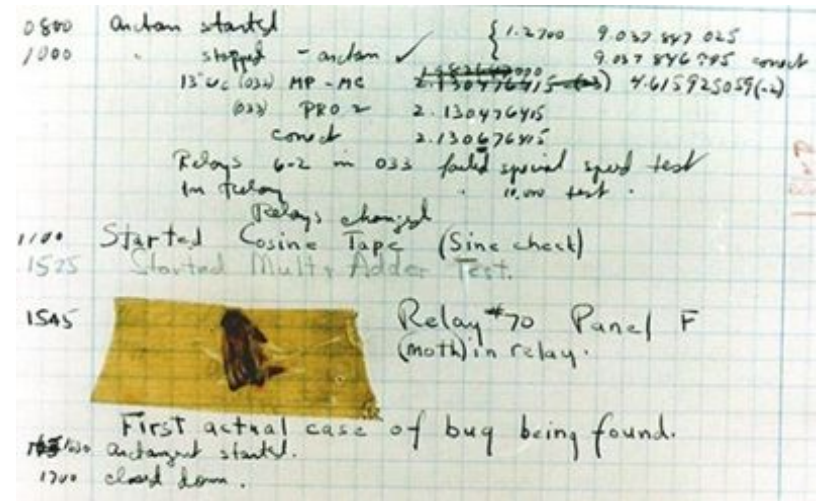 0800 antan started { 1.2700 9.037 847 025
1000 " stopped - antan ✓ 9.037 846 995 conect
13"uc (032) MP-MC 2.130476415 (-3) 4.615925059(-2)
(033) PRO 2 2.130476415
conect 2.130676415
Relays 6-2 in 033 failed special speed test
In Relay " 10.000 test "
Relays changed
1100 Started Cosine Tape (Sine check)
1525 Started Mult+Adder Test.
1545 Relay #70 Panel F
(moth) in relay.
First actual case of bug being found.
1630 antangent started.
1700 closed down.